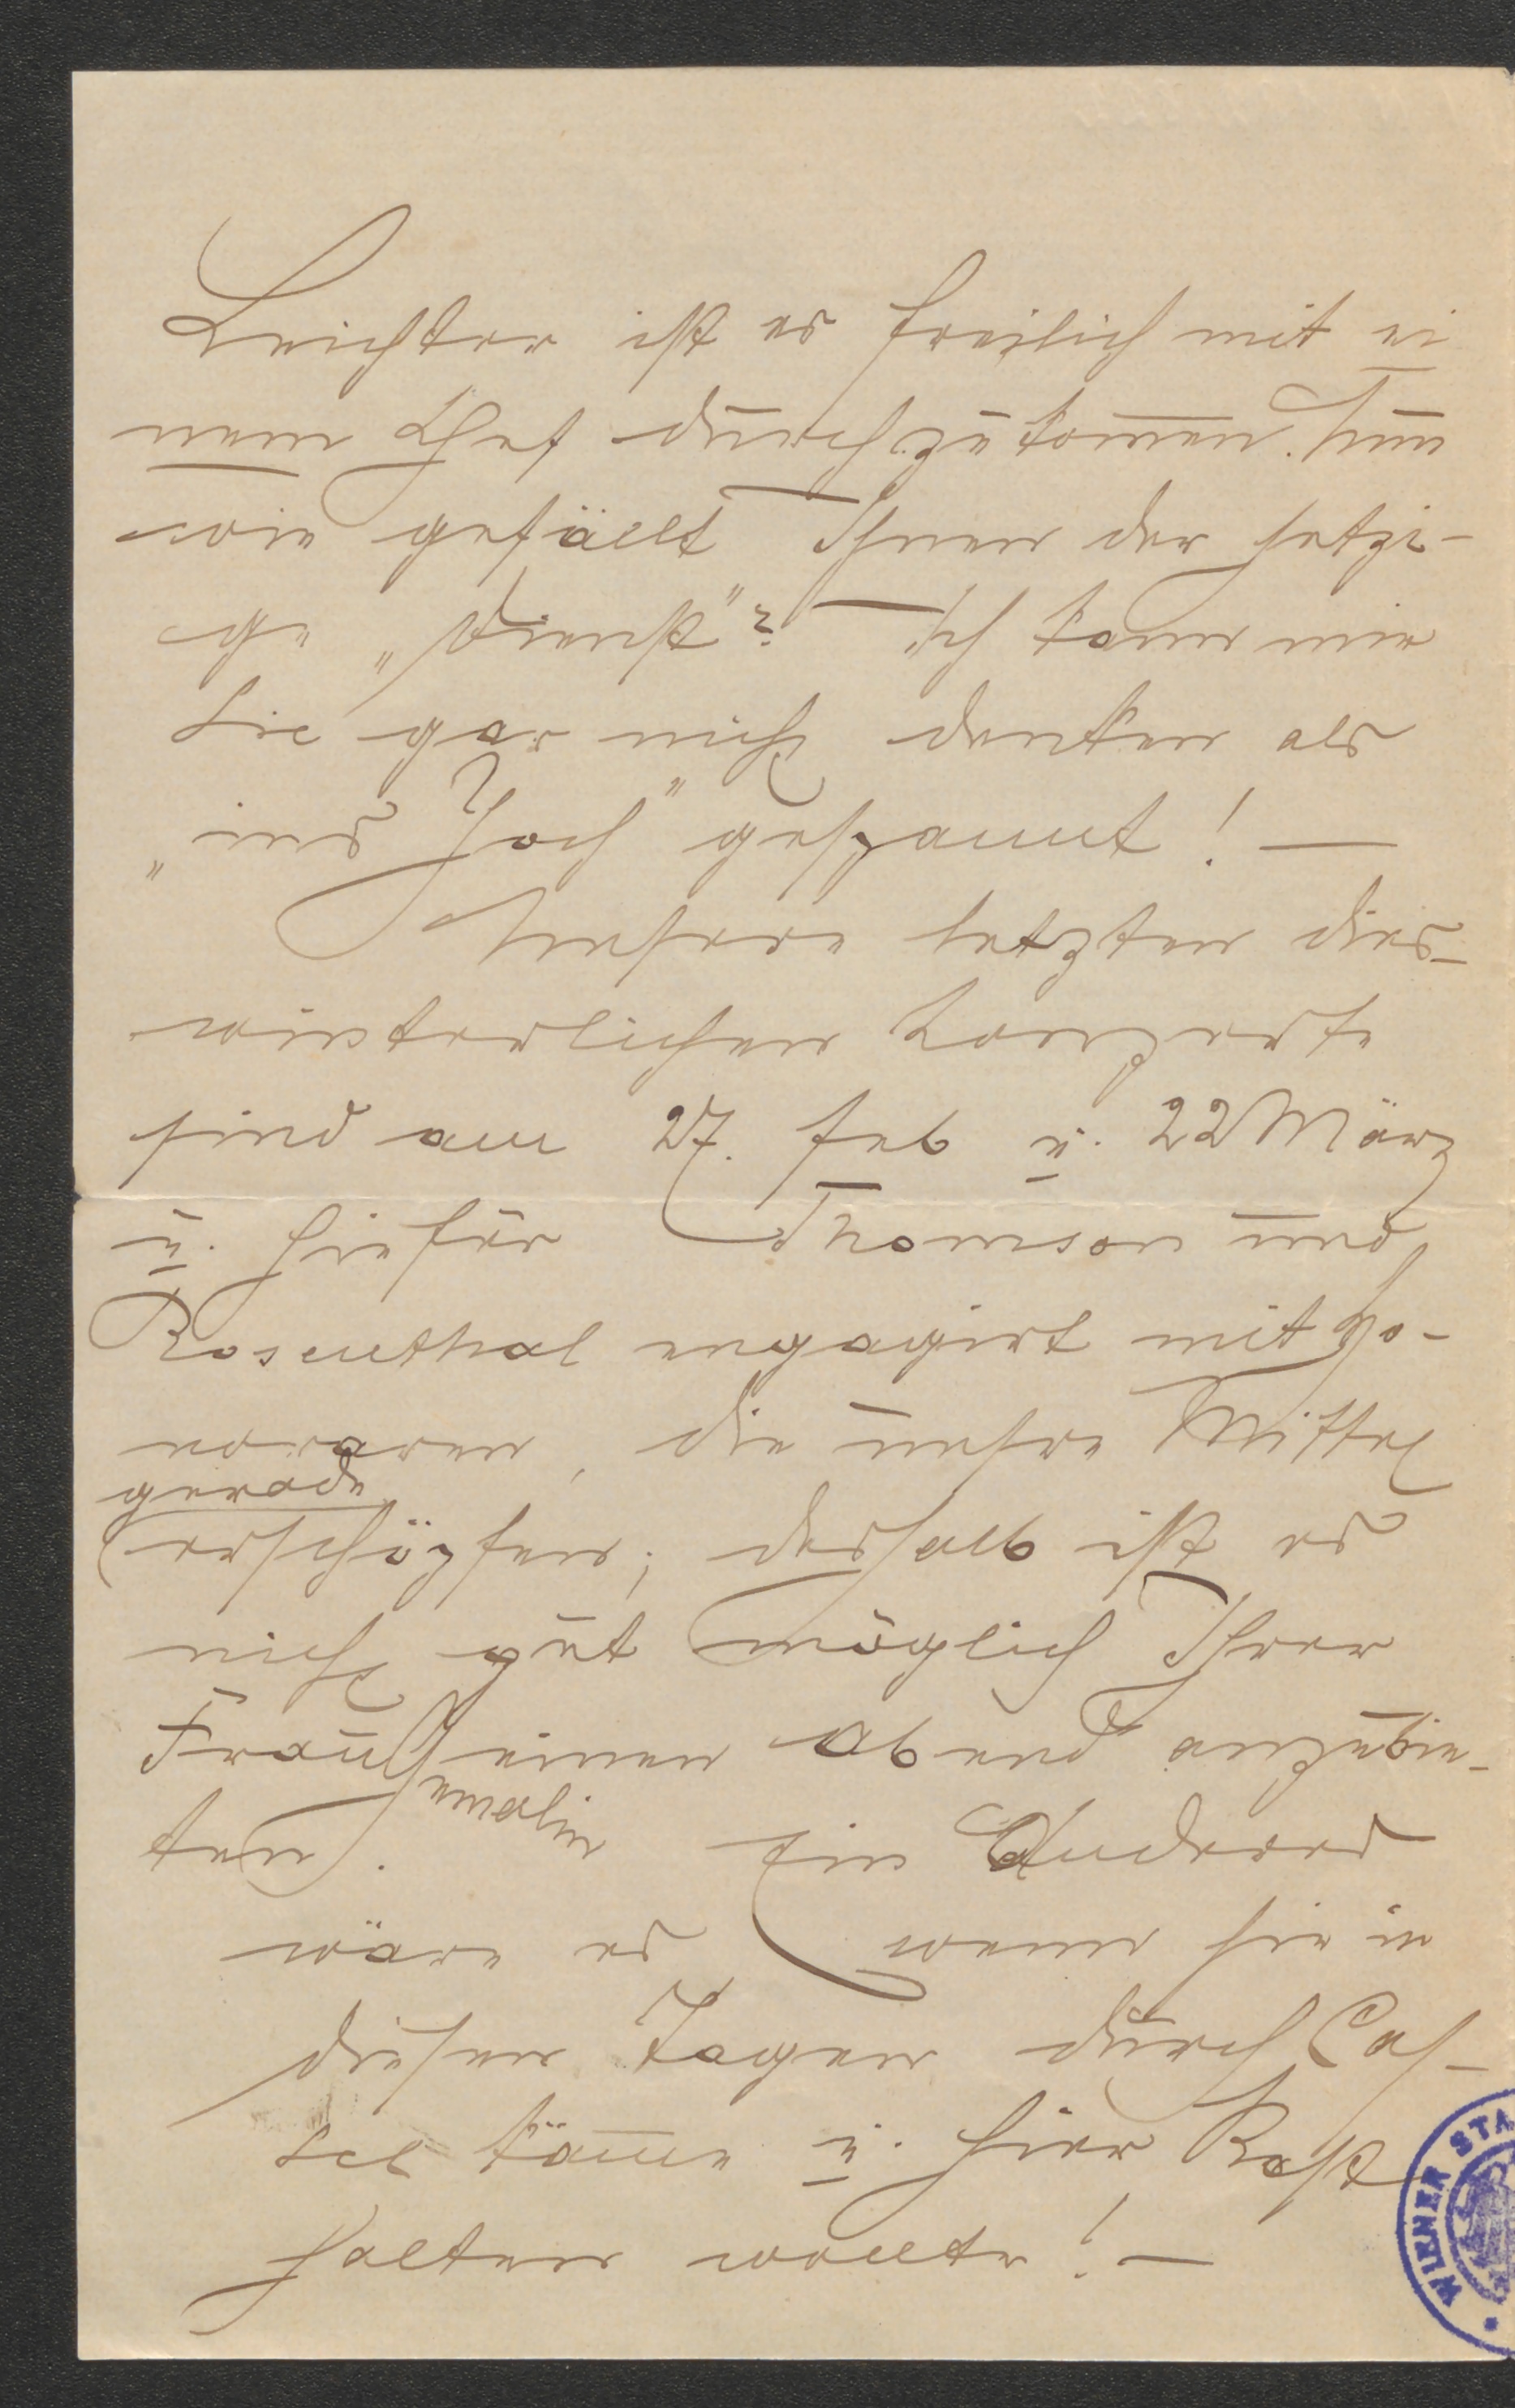 Leichter ist es freilich mit ei
nem Chef durchzukom̅en. Nun
wie gefällt Ihnen der jetzi-
ge „Dienst"? — Ich kann mir
Sie gar nicht denken als
„ins Joch" gespannt! —
Unsere letzten dies-
winterlichen Konzerte
sind am 27. Feb u. 22 März
u. hiefür Thomson und
Rosenthal engagirt mit Ho-
noraren, die unsre Mittel
gerade
erschöpfen; deshalb ist es
nicht gut möglich Ihrer
Frau Gemalin einen Abend anzubie-
ten. Ein Anderes
wäre es wenn sie in
diesen Tagen durch Cas-
sel käme u. hier Rast
halten wollte! —
WIENER STA